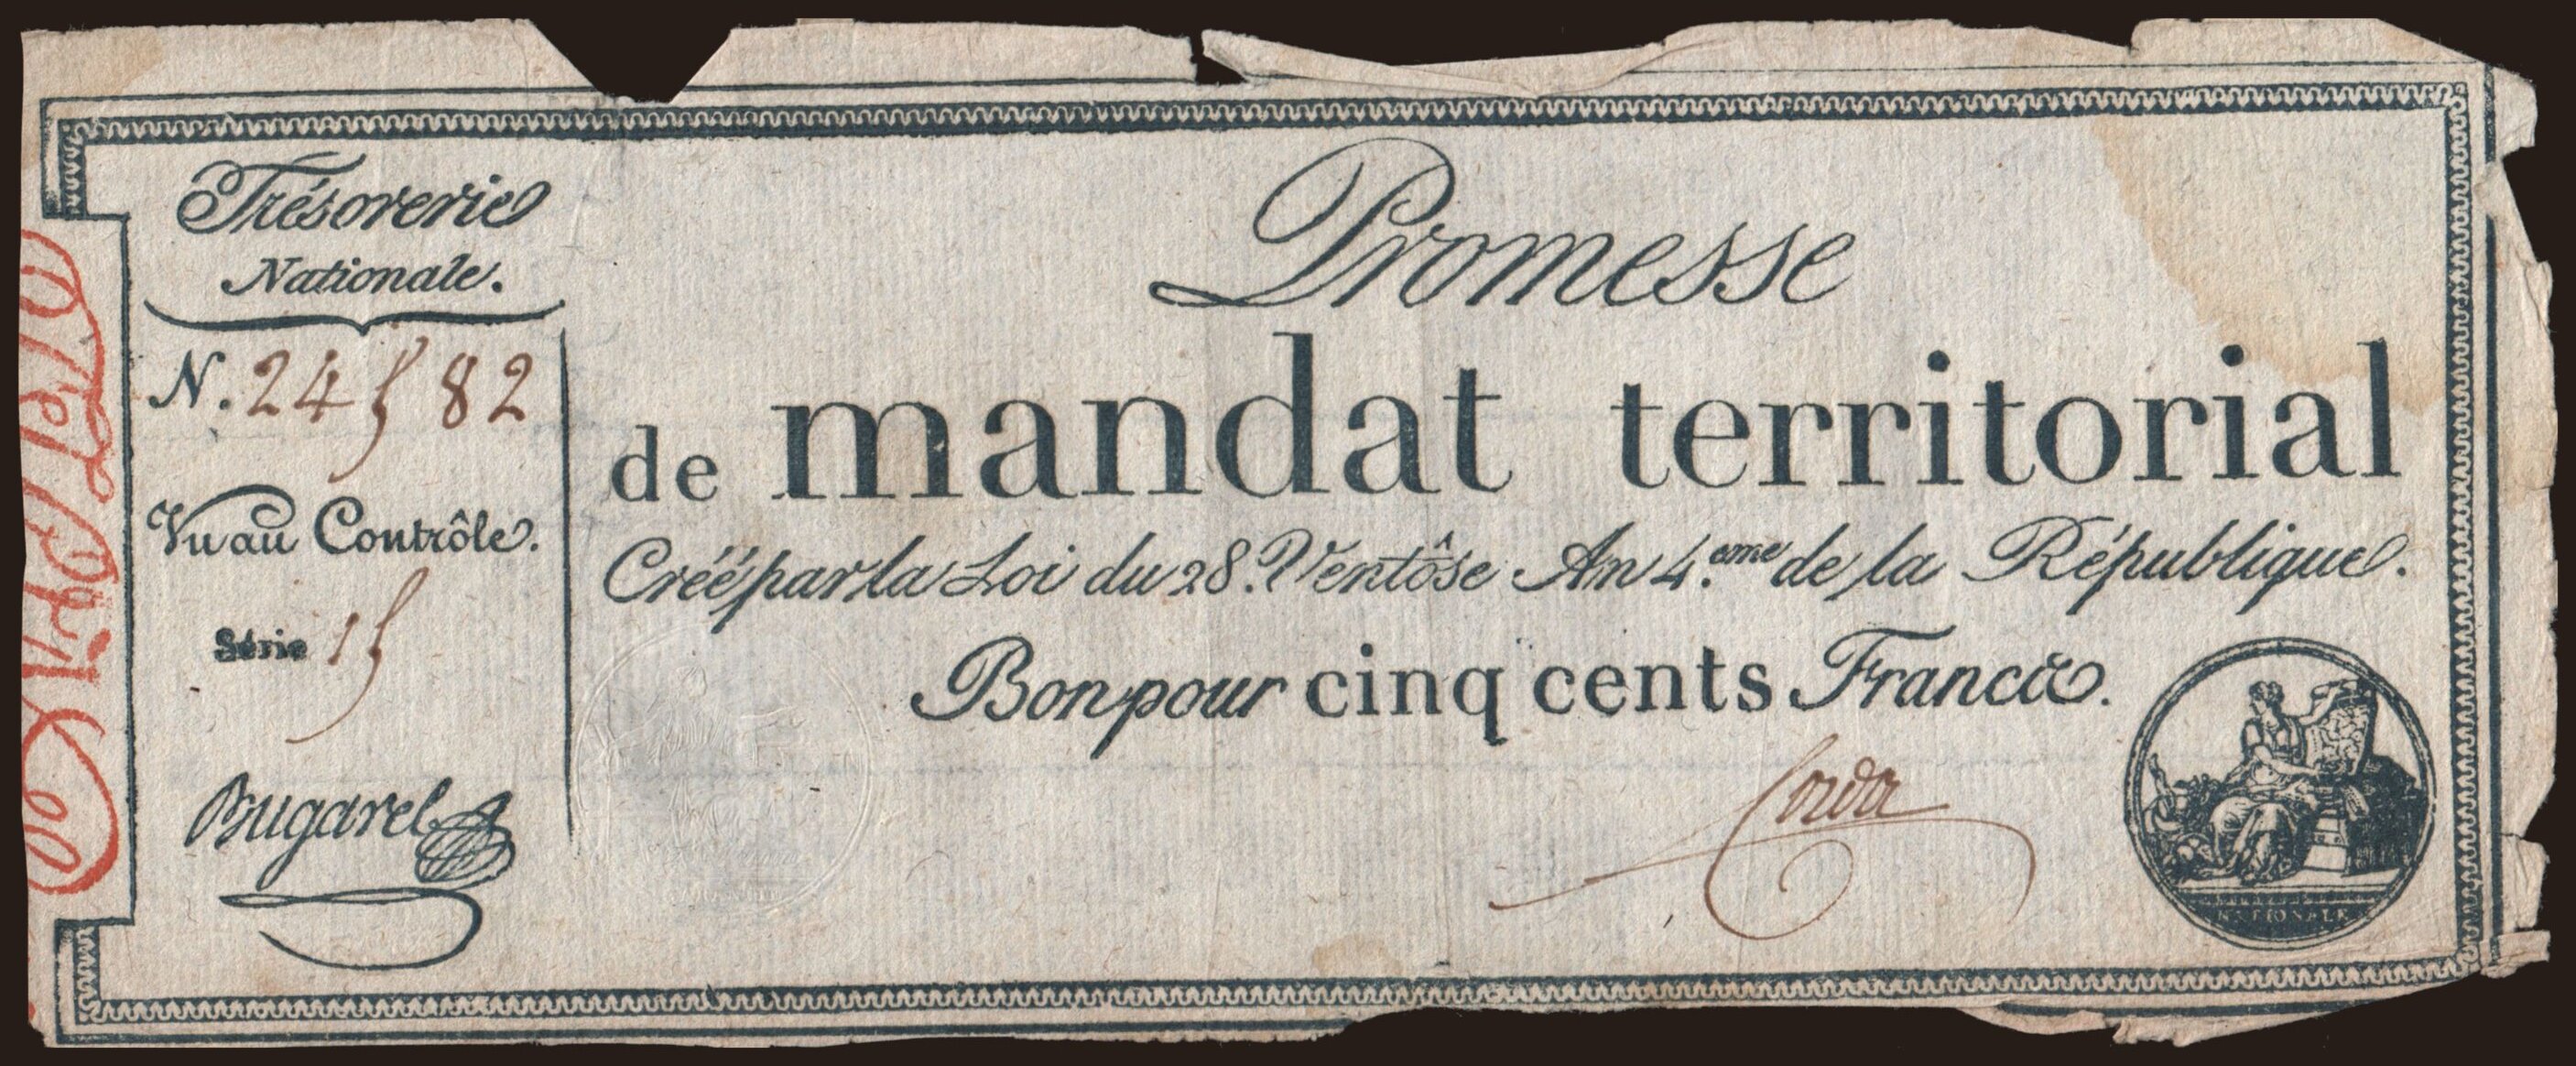 Trésorerie
Nationale.
N. 24582
Vu au Contrôle.
Série 15
Bugarel
Promesse
de mandat territorial
Créé par la Loi du 28. Ventôse An 4.eme de la République.
Bon pour cinq cents Francs.
NATIONALE